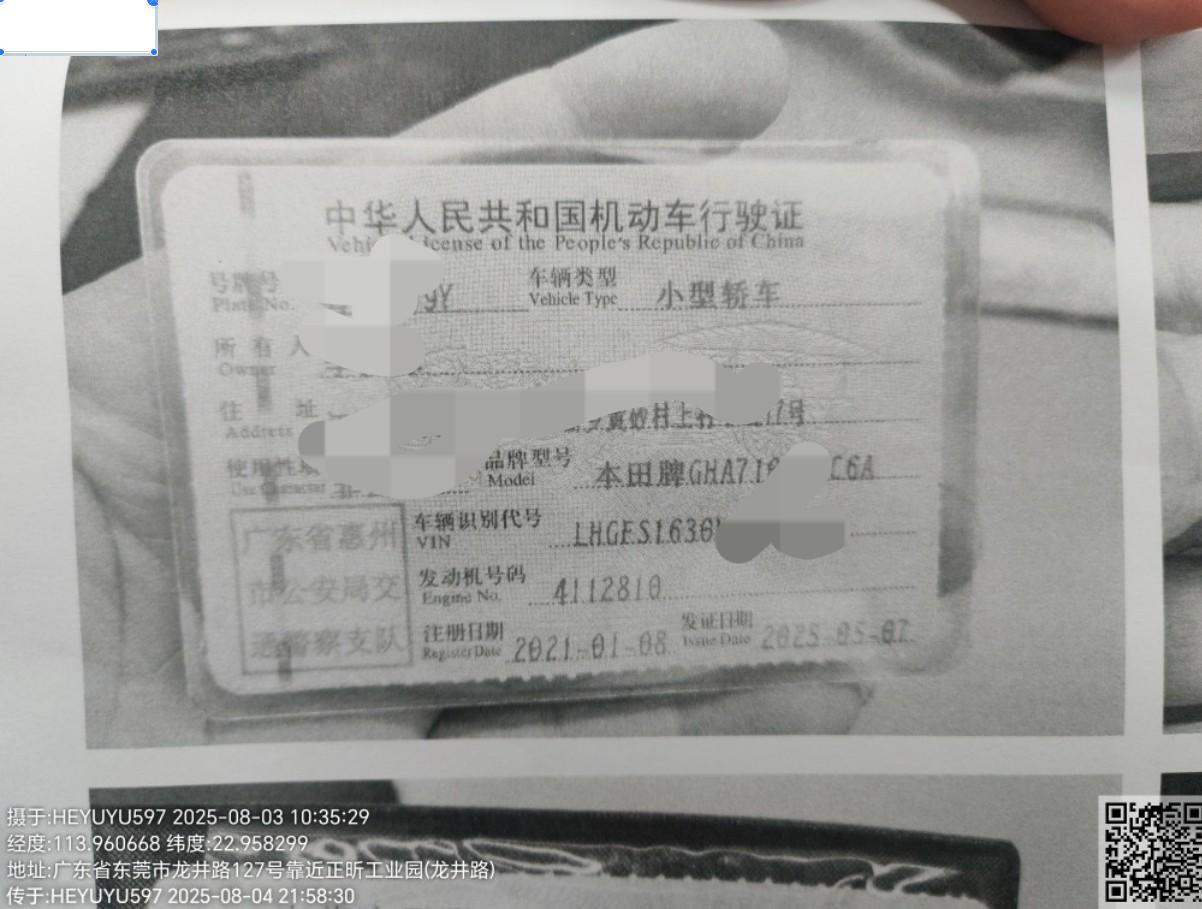 中华人民共和国机动车行驶证
Vehi icense of the People's Republic of China
号牌号 9Y 车辆类型 小型轿车
Plate No. Vehicle Type
所有人
Owner
住址 村上 17号
Address
使用性 品牌型号 本田牌GHA71 C6A
Use Character Model
车辆识别代号 LHGFS1636
VIN
发动机号码 4112810
Engine No.
注册日期 2021-01-08 发证日期 2025-05-07
Register Date Issue Date
广东省惠州
市公安局交
通警察支队
摄于:HEYUYU597 2025-08-03 10:35:29
经度:113.960668 纬度:22.958299
地址:广东省东莞市龙井路127号靠近正昕工业园(龙井路)
传于:HEYUYU597 2025-08-04 21:58:30